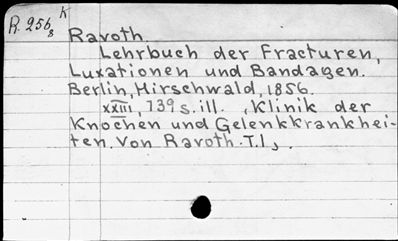 R. 256₈ K
Ravoth
Lehrbuch der Fracturen,
Luxationen und Bandagen.
Berlin, Hirschwald, 1856.
XXIII, 739 s. ill. , Klinik der
Knochen und Gelenkkrankhei-
ten. Von Ravoth. T. 1, .